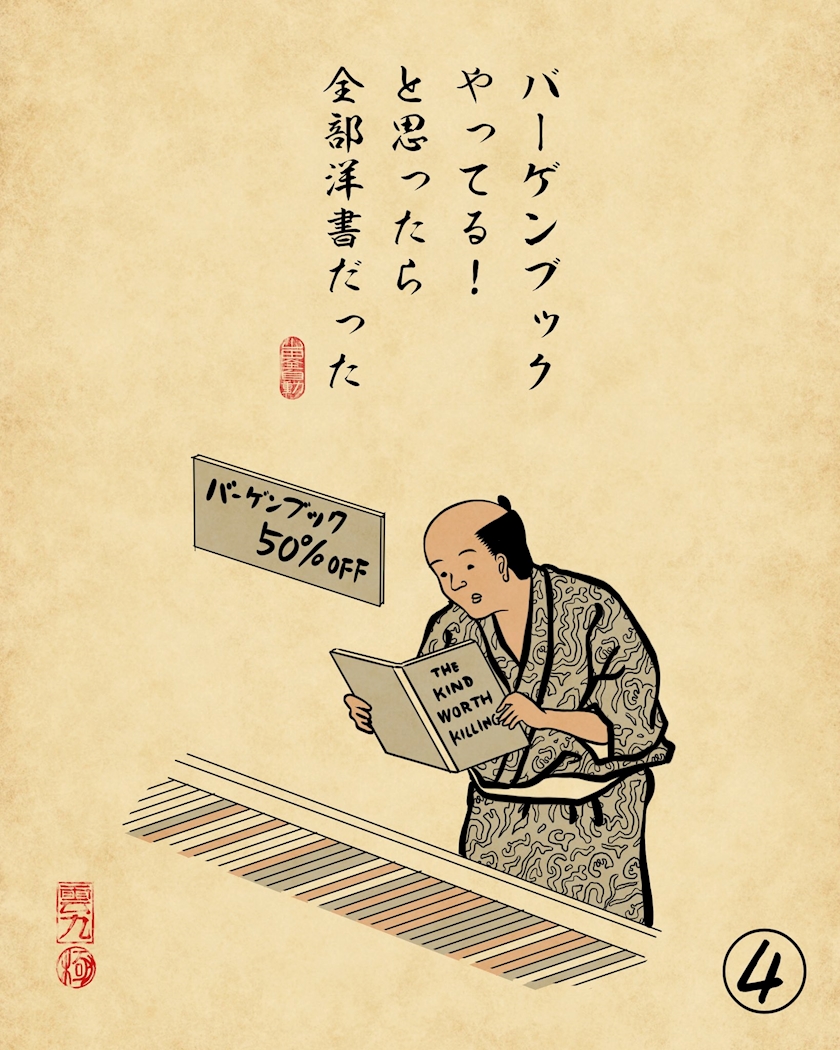 バーゲンブック
やってる！
と思ったら
全部洋書だった
バーゲンブック
50%OFF
THE
KIND
WORTH
KILLING
4